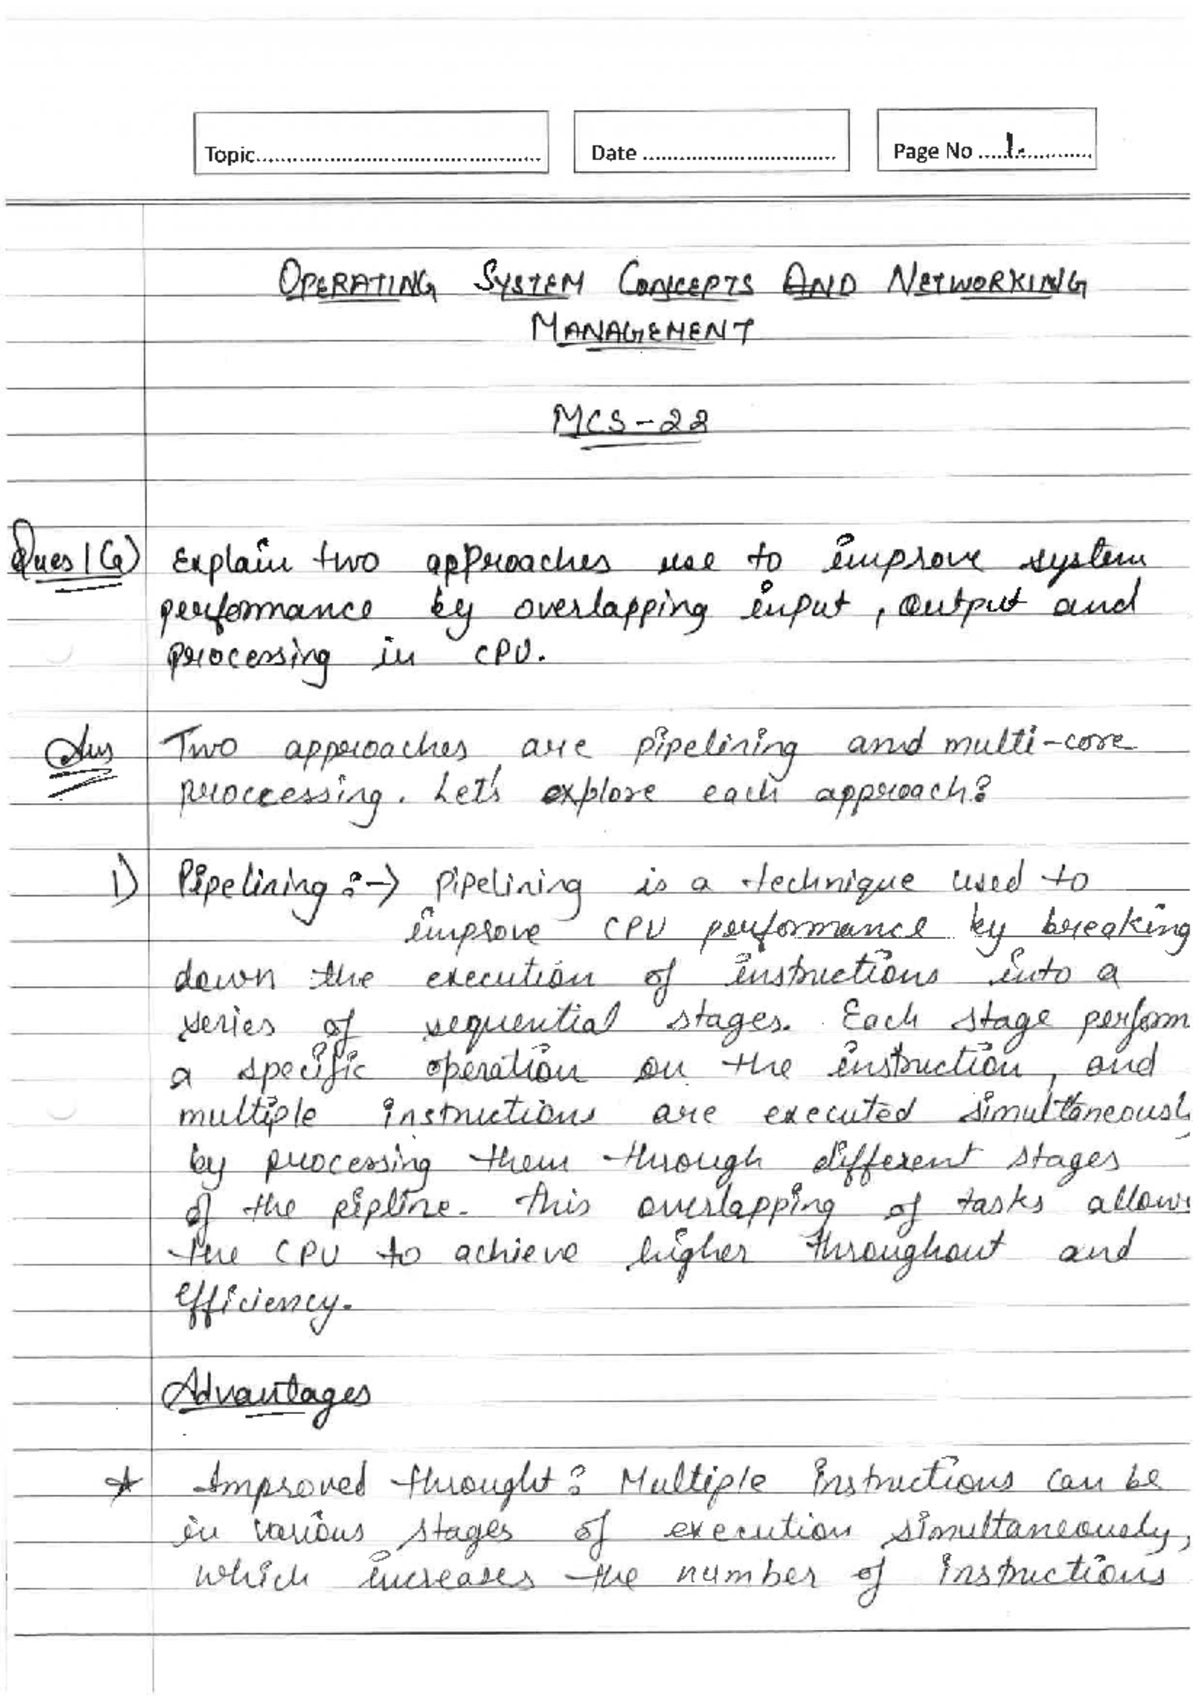 Topic................................................
Date .................................
Page No .....1...............
OPERATING SYSTEM CONCEPTS AND NETWORKING
MANAGEMENT
MCS-22
Ques 1(a) Explain two approaches use to improve system
performance by overlapping input, output and
processing in CPU.
Ans Two approaches are pipelining and multi-core
proccessing. Let's explore each approach:
1) Pipelining :-> pipelining is a technique used to
improve CPU performance by breaking
down the execution of instructions into a
series of sequential stages. Each stage perform
a specific operation on the instruction, and
multiple instructions are executed simultaneousl
by processing them through different stages
of the pipline. This overlapping of tasks allows
the CPU to achieve higher throughout and
efficiency.
Advantages
* Improved throught: Multiple instructions can be
in various stages of execution simultaneously,
which increases the number of instructions